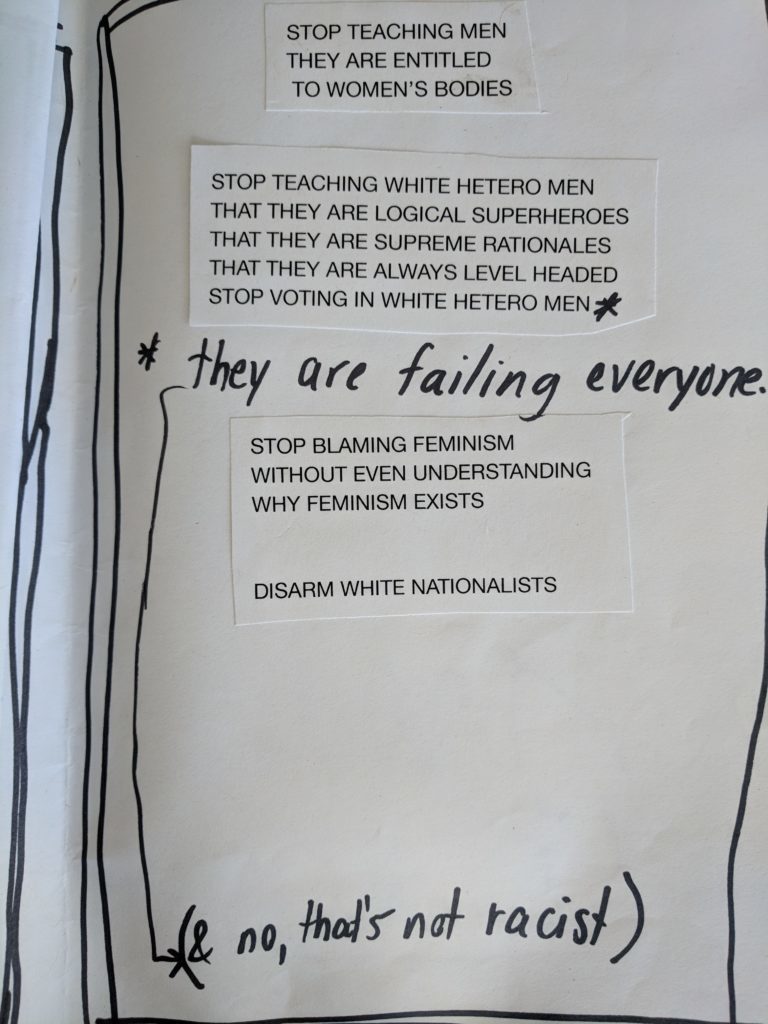 STOP TEACHING MEN
THEY ARE ENTITLED
TO WOMEN'S BODIES
STOP TEACHING WHITE HETERO MEN
THAT THEY ARE LOGICAL SUPERHEROES
THAT THEY ARE SUPREME RATIONALES
THAT THEY ARE ALWAYS LEVEL HEADED
STOP VOTING IN WHITE HETERO MEN*
* they are failing everyone.
STOP BLAMING FEMINISM
WITHOUT EVEN UNDERSTANDING
WHY FEMINISM EXISTS
DISARM WHITE NATIONALISTS
(& no, that's not racist)